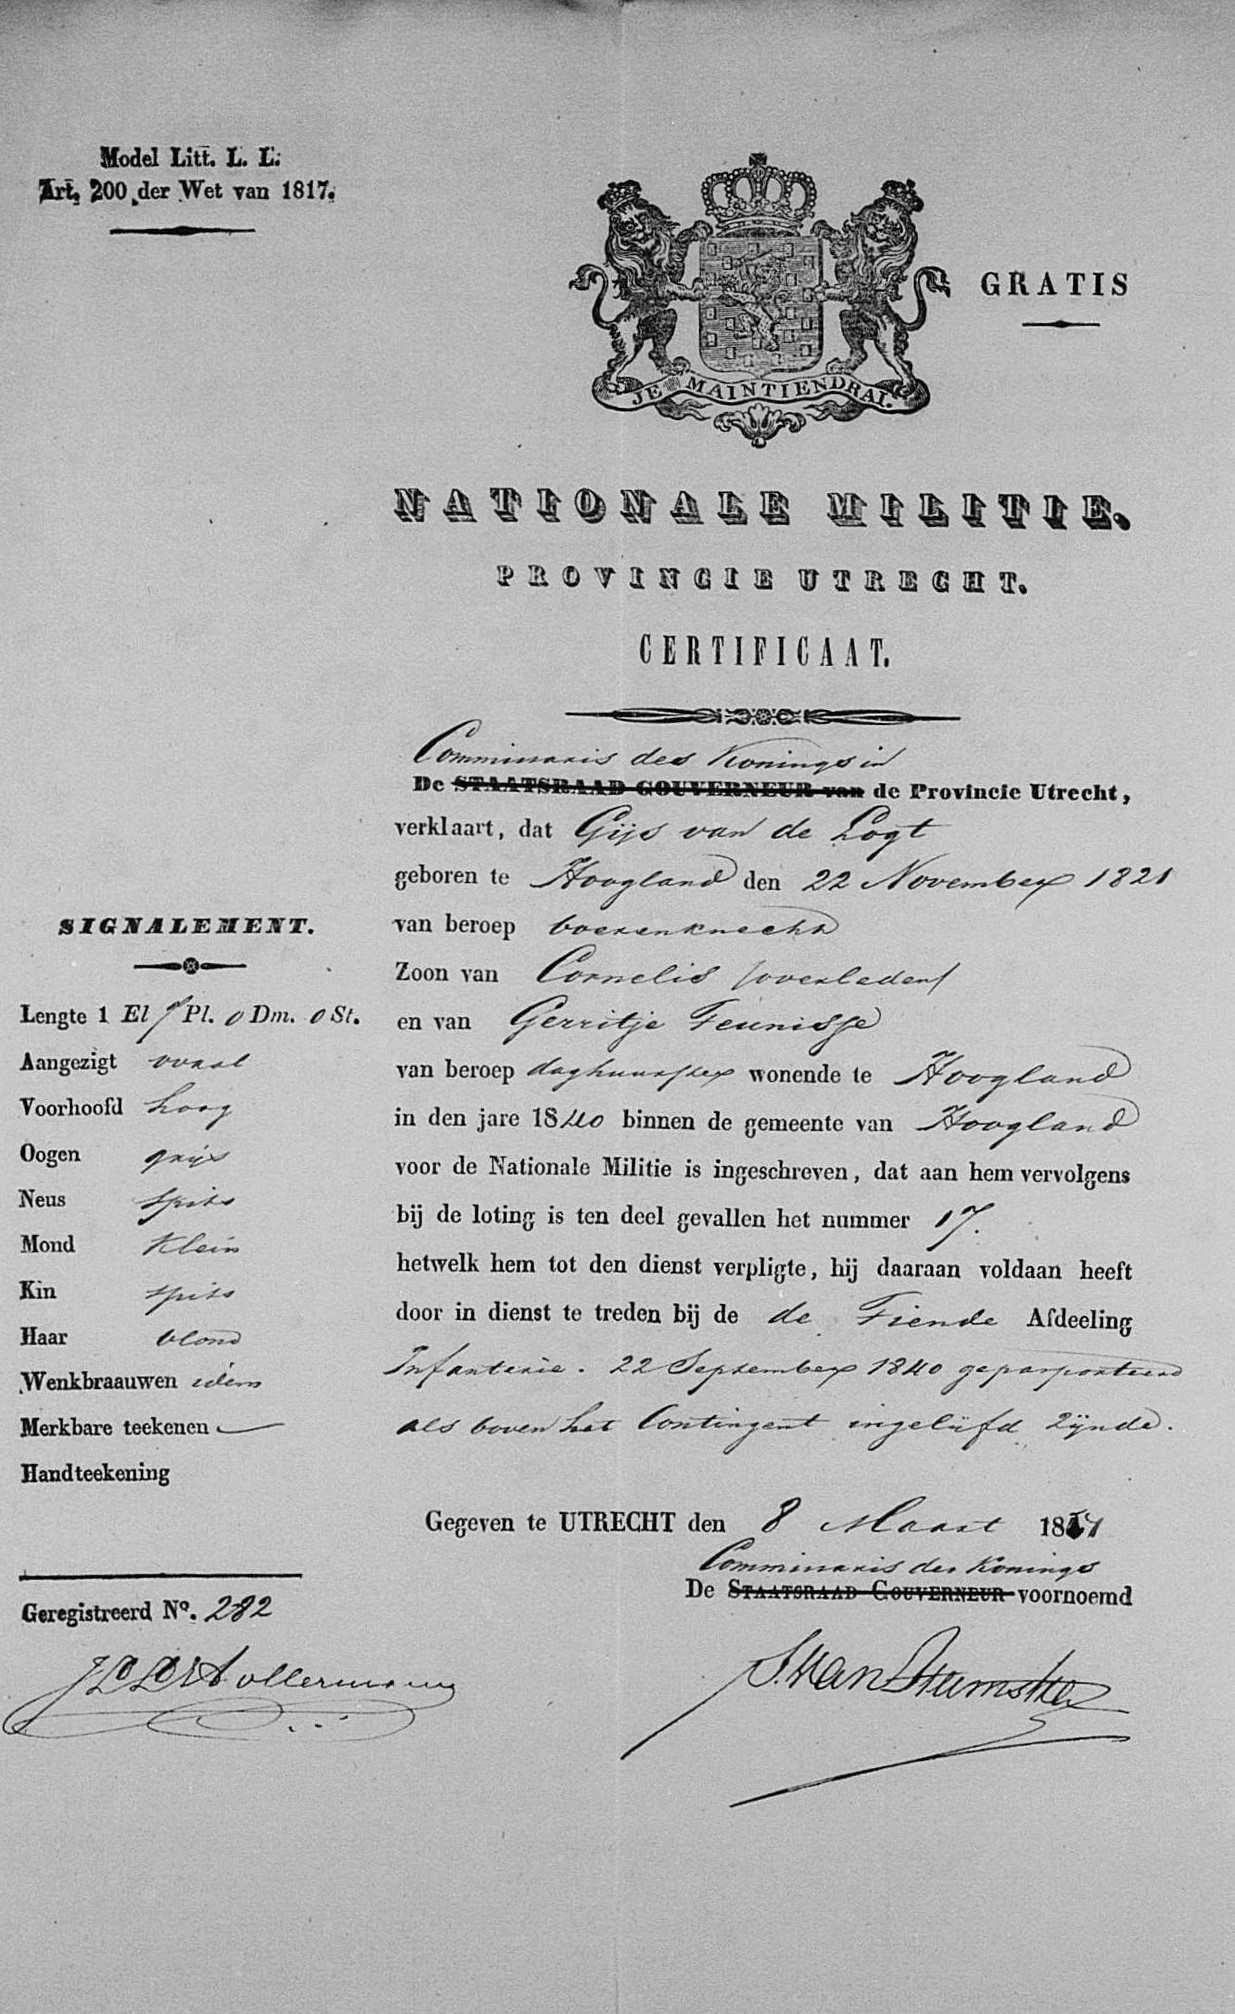 Model Litt. L. L.
Art. 200 der Wet van 1817.
GRATIS
JE MAINTIENDRAI.
NATIONALE MILITIE.
PROVINCIE UTRECHT.
CERTIFICAAT.
Commissaris des Konings in
De STAATSRAAD GOUVERNEUR van de Provincie Utrecht,
verklaart, dat Gijs van de Logt
geboren te Hoogland den 22 November 1821
van beroep boerenknecht
Zoon van Cornelis /overleden/
en van Gerritje Teunisse
van beroep daghuurster wonende te Hoogland
in den jare 1840 binnen de gemeente van Hoogland
voor de Nationale Militie is ingeschreven, dat aan hem vervolgens
bij de loting is ten deel gevallen het nummer 17.
hetwelk hem tot den dienst verpligte, hij daaraan voldaan heeft
door in dienst te treden bij de de Tiende Afdeeling
Infanterie. 22 September 1840 gepasporteerd
als boven het Contingent ingelijfd zijnde.
Gegeven te UTRECHT den 8 Maart 1851
Commissaris des Konings
De STAATSRAAD GOUVERNEUR voornoemd
SIGNALEMENT.
Lengte 1 El 7 Pl. 0 Dm. 0 St.
Aangezigt ovaal
Voorhoofd hoog
Oogen grijs
Neus spits
Mond klein
Kin spits
Haar blond
Wenkbraauwen idem
Merkbare teekenen —
Handteekening
Geregistreerd No. 282